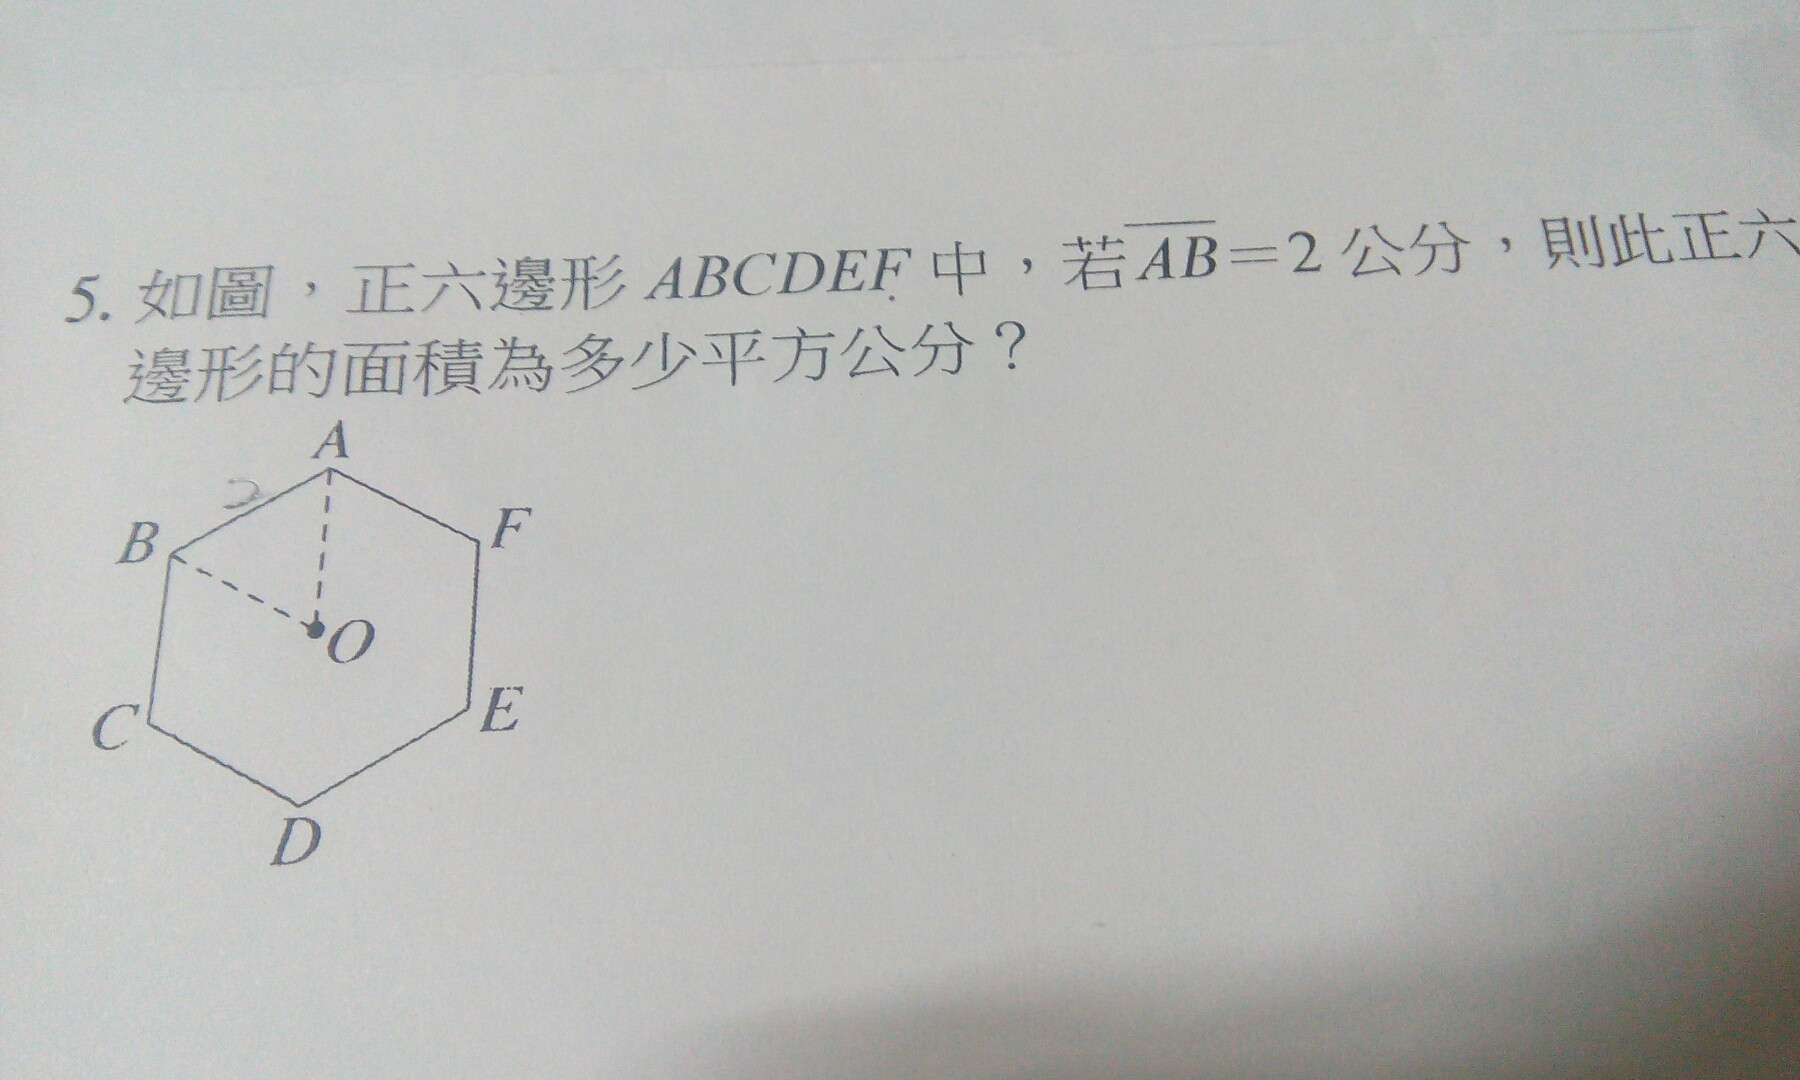 5. 如圖，正六邊形 ABCDEF 中，若AB=2 公分，則此正六
邊形的面積為多少平方公分？
A
2
B
F
O
C
E
D